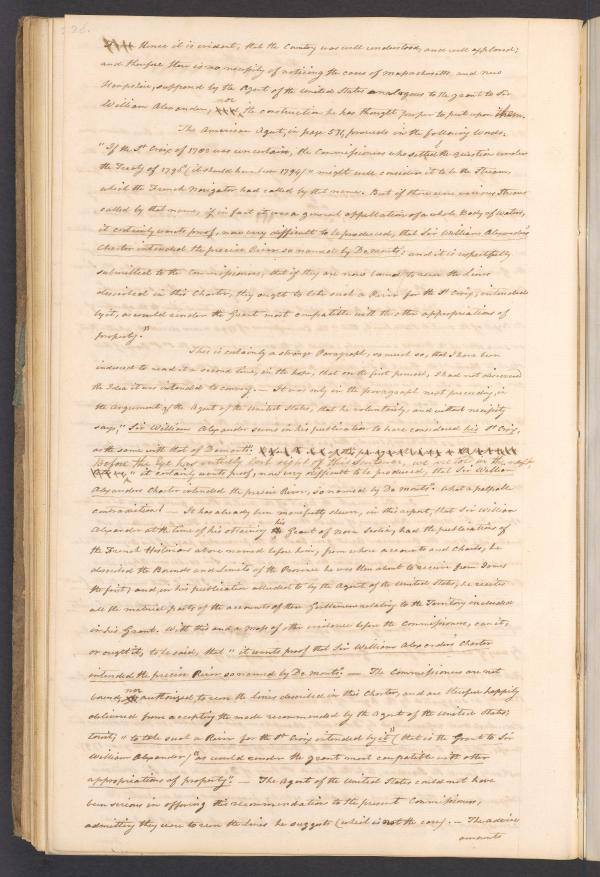 Hence it is evident, that the Country was well understood, and well explored;
and therefore there is no necessity of noticing the cases of Massachusetts, and New
Hampshire, supposed by the Agent of the United States analogous to the grant to Sir
William Alexander, nor the construction he has thought proper to put upon them.
The American Agent, in page 574, proceeds in the following words:
"If the St Croix of 1783 was uncertain, the Commissioners who settled the question under
the Treaty of 1796 (it should have been 1794) might well consider it to be the Stream,
which the French Navigator had called by that name. But if there were various Streams
called by that name, if in fact it was a general appellation of a whole Body of Waters,
it certainly wants proof, now very difficult to be produced, that Sir William Alexanders
Charter intended the precise River so named by De Monts; and it is respectfully
submitted to the Commissioners, that if they are now bound to run the lines
described in this Charter, they ought to take such a River for the St Croix, intended
by it, as would render the Grant most compatible with the other appropriations of
property."
This is certainly a strange Paragraph, so much so, that I have been
induced to read it a second time, in the hope, that on the first perusal, I had not discovered
the Idea it was intended to convey. — It was only in the paragraph next preceding, in
the Argument of the Agent of the United States, that he voluntarily, and without necessity
says, "Sir William Alexander seems in his publication to have considered his St Croix,
as the same with that of Demonts."
Before the Eye has entirely lost sight of this Sentence, we are told in the next,
"it certainly wants proof, now very difficult to be produced, that Sir William
Alexanders Charter intended the precise River, so named by De Monts." What a palpable
contradiction! — It has already been manifestly shewn, in this report, that Sir William
Alexander at the time of his obtaining his Grant of Nova Scotia, had the publications of
the French Historians above named before him, from whose accounts and Charts, he
described the Bounds and Limits of the Province he was then about to receive from James
the first; and, in his publication alluded to by the Agent of the United States, he recites
all the material parts of the accounts of these Gentlemen relating to the Territory included
in his Grant. With this and a mass of other evidence before the Commissioners, can it,
or ought it, to be said, that "it wants proof that Sir William Alexanders Charter
intended the precise River so named by De Monts." — The Commissioners are not
bound, nor authorized to run the lines described in this Charter, and are therefore happily
delivered from accepting the mode recommended by the Agent of the United States,
towit; "to take such a River for the St Croix intended by it" (that is the Grant to Sir
William Alexander) "as would render the grant most compatible with other
appropriations of property." — The Agent of the United States could not have
been serious in offering this recommendation to the present Commissioners,
admitting they were to run the lines he suggests (which is not the case). — The advice
amounts